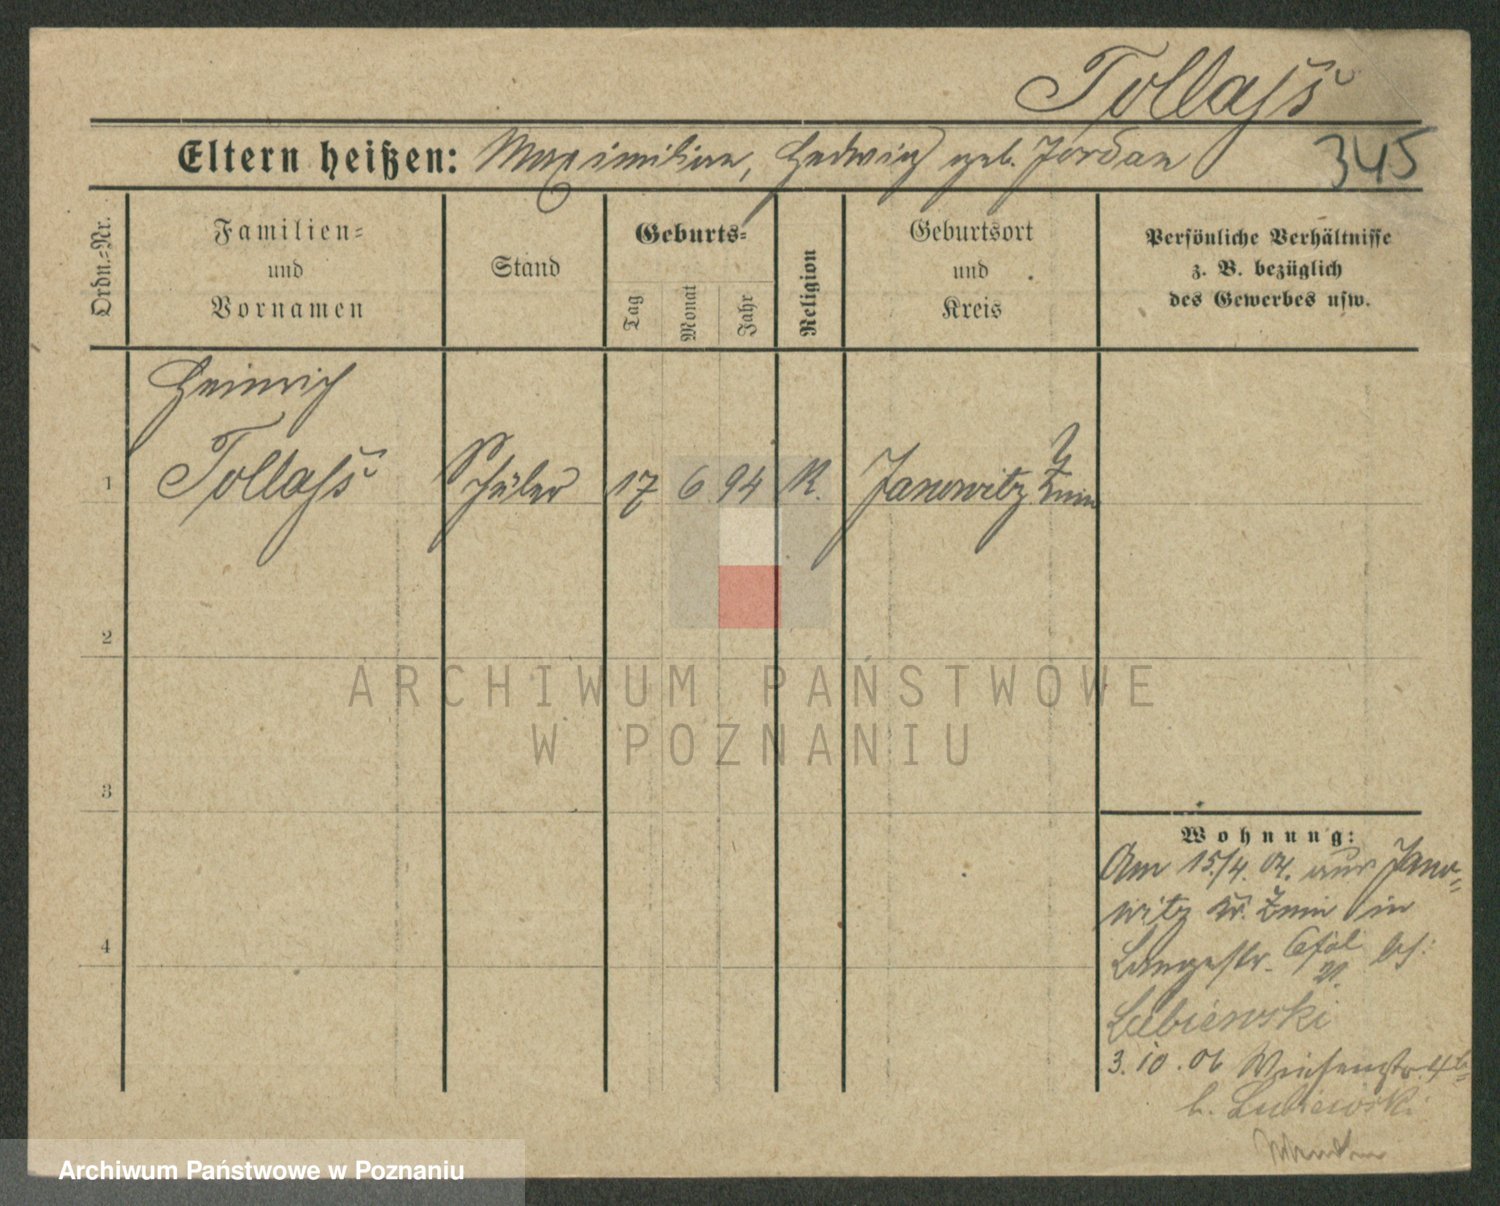 Tollass
345
Eltern heißen: Maximilian, Hedwig geb. Jordan
Ordn.-Nr.
Familien-
und
Vornamen
Stand
Geburts-
Tag
Monat
Jahr
Religion
Geburtsort
und
Kreis
Persönliche Verhältnisse
z. B. bezüglich
des Gewerbes usw.
Heinrich
1 Tollass Schüler 17 6 94 K. Janowitz Znin
2
3
4
ARCHIWUM PAŃSTWOWE
W POZNANIU
Wohnung:
Am 15./4. 04. aus Jano-
witz Kr. Znin in
Langestr. bei
Lubiewski
3.10.06 Wiesenstr.
b. Lubiewski
Archiwum Państwowe w Poznaniu